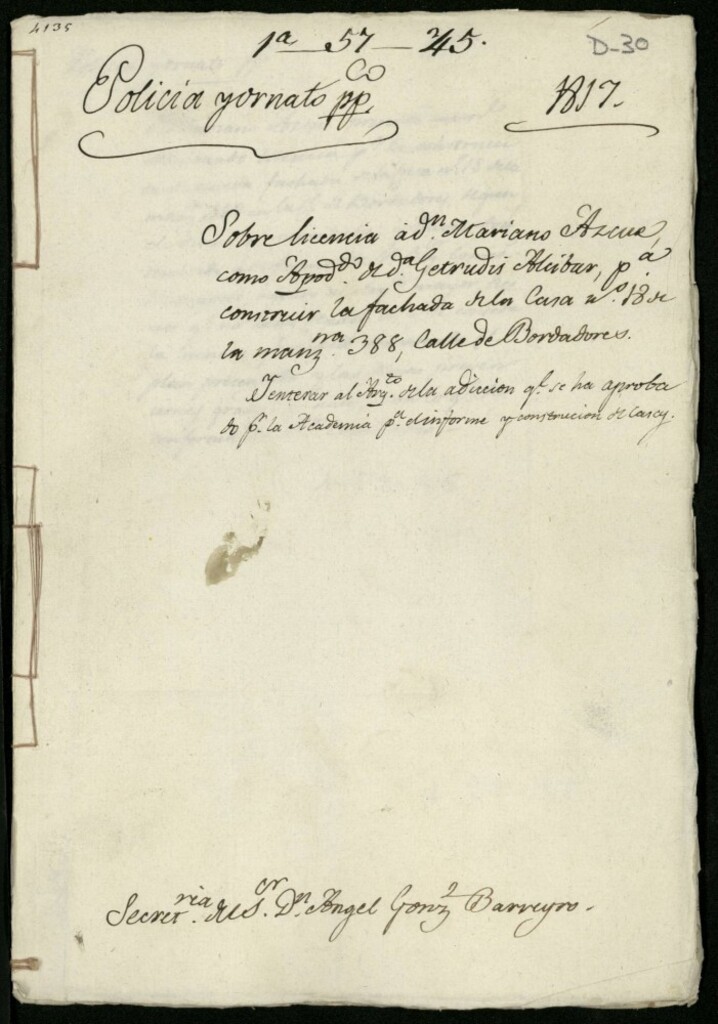 4135
1ª 57 - 45.
D-30
Policia y ornato ppCo
1817.
Sobre licencia à dn. Mariano Azcue,
como Apoddo. de da. Getrudis Alcibar, pa.
construir la fachada de la Casa no. 18 de
la manzna. 388, Calle de Bordadores.
Y enterar al Arqto. de la adicion qe. se ha aproba
do pr. la Academia pa. el informe y construcion de
Secretria. del Sor. Dn. Angel Gonz Barreyro.